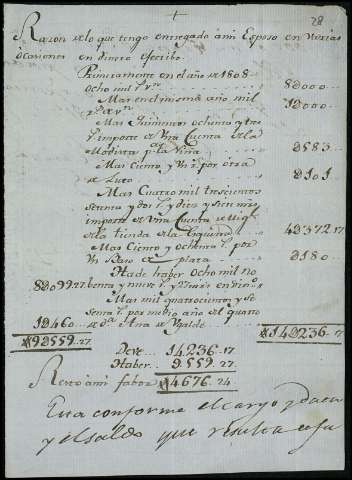 +
28
Razon de lo que tengo entregado á mi Esposo en Varias
ocasiones en dinero efectibo.
Primeramente en el año de 1808
ocho mil r.s v.n 8000
Mas en el mismo año mil
r.s de v.n 1000
Mas Quinientos ochenta y tres
r.s importe de Una Cuenta de la
Modista p.a la Niña 583
Mas Ciento y Un r.s por otra
de Luto 101
Mas Cuatro mil trescientos
setenta y dos r.s y diez y siete mrs
importe de Una Cuenta de
de la tienda de la Esquina 4372.17
Mas Ciento y ochenta r.s por
Un Baso de plata 180
Ha de haber Ocho mil no
8099.27 benta y nueve r.s y 27 mrs en dinero
Mas mil quatrocientos y se
senta r.s por medio año del quarto
1460 de D.a Ana de Ugalde
9559.27 14236.17
Deve 14236.17
Haber 9559.27
Resto á mi fabor 4676.24
Esta conforme el cargo y Data
y el saldo que resulta